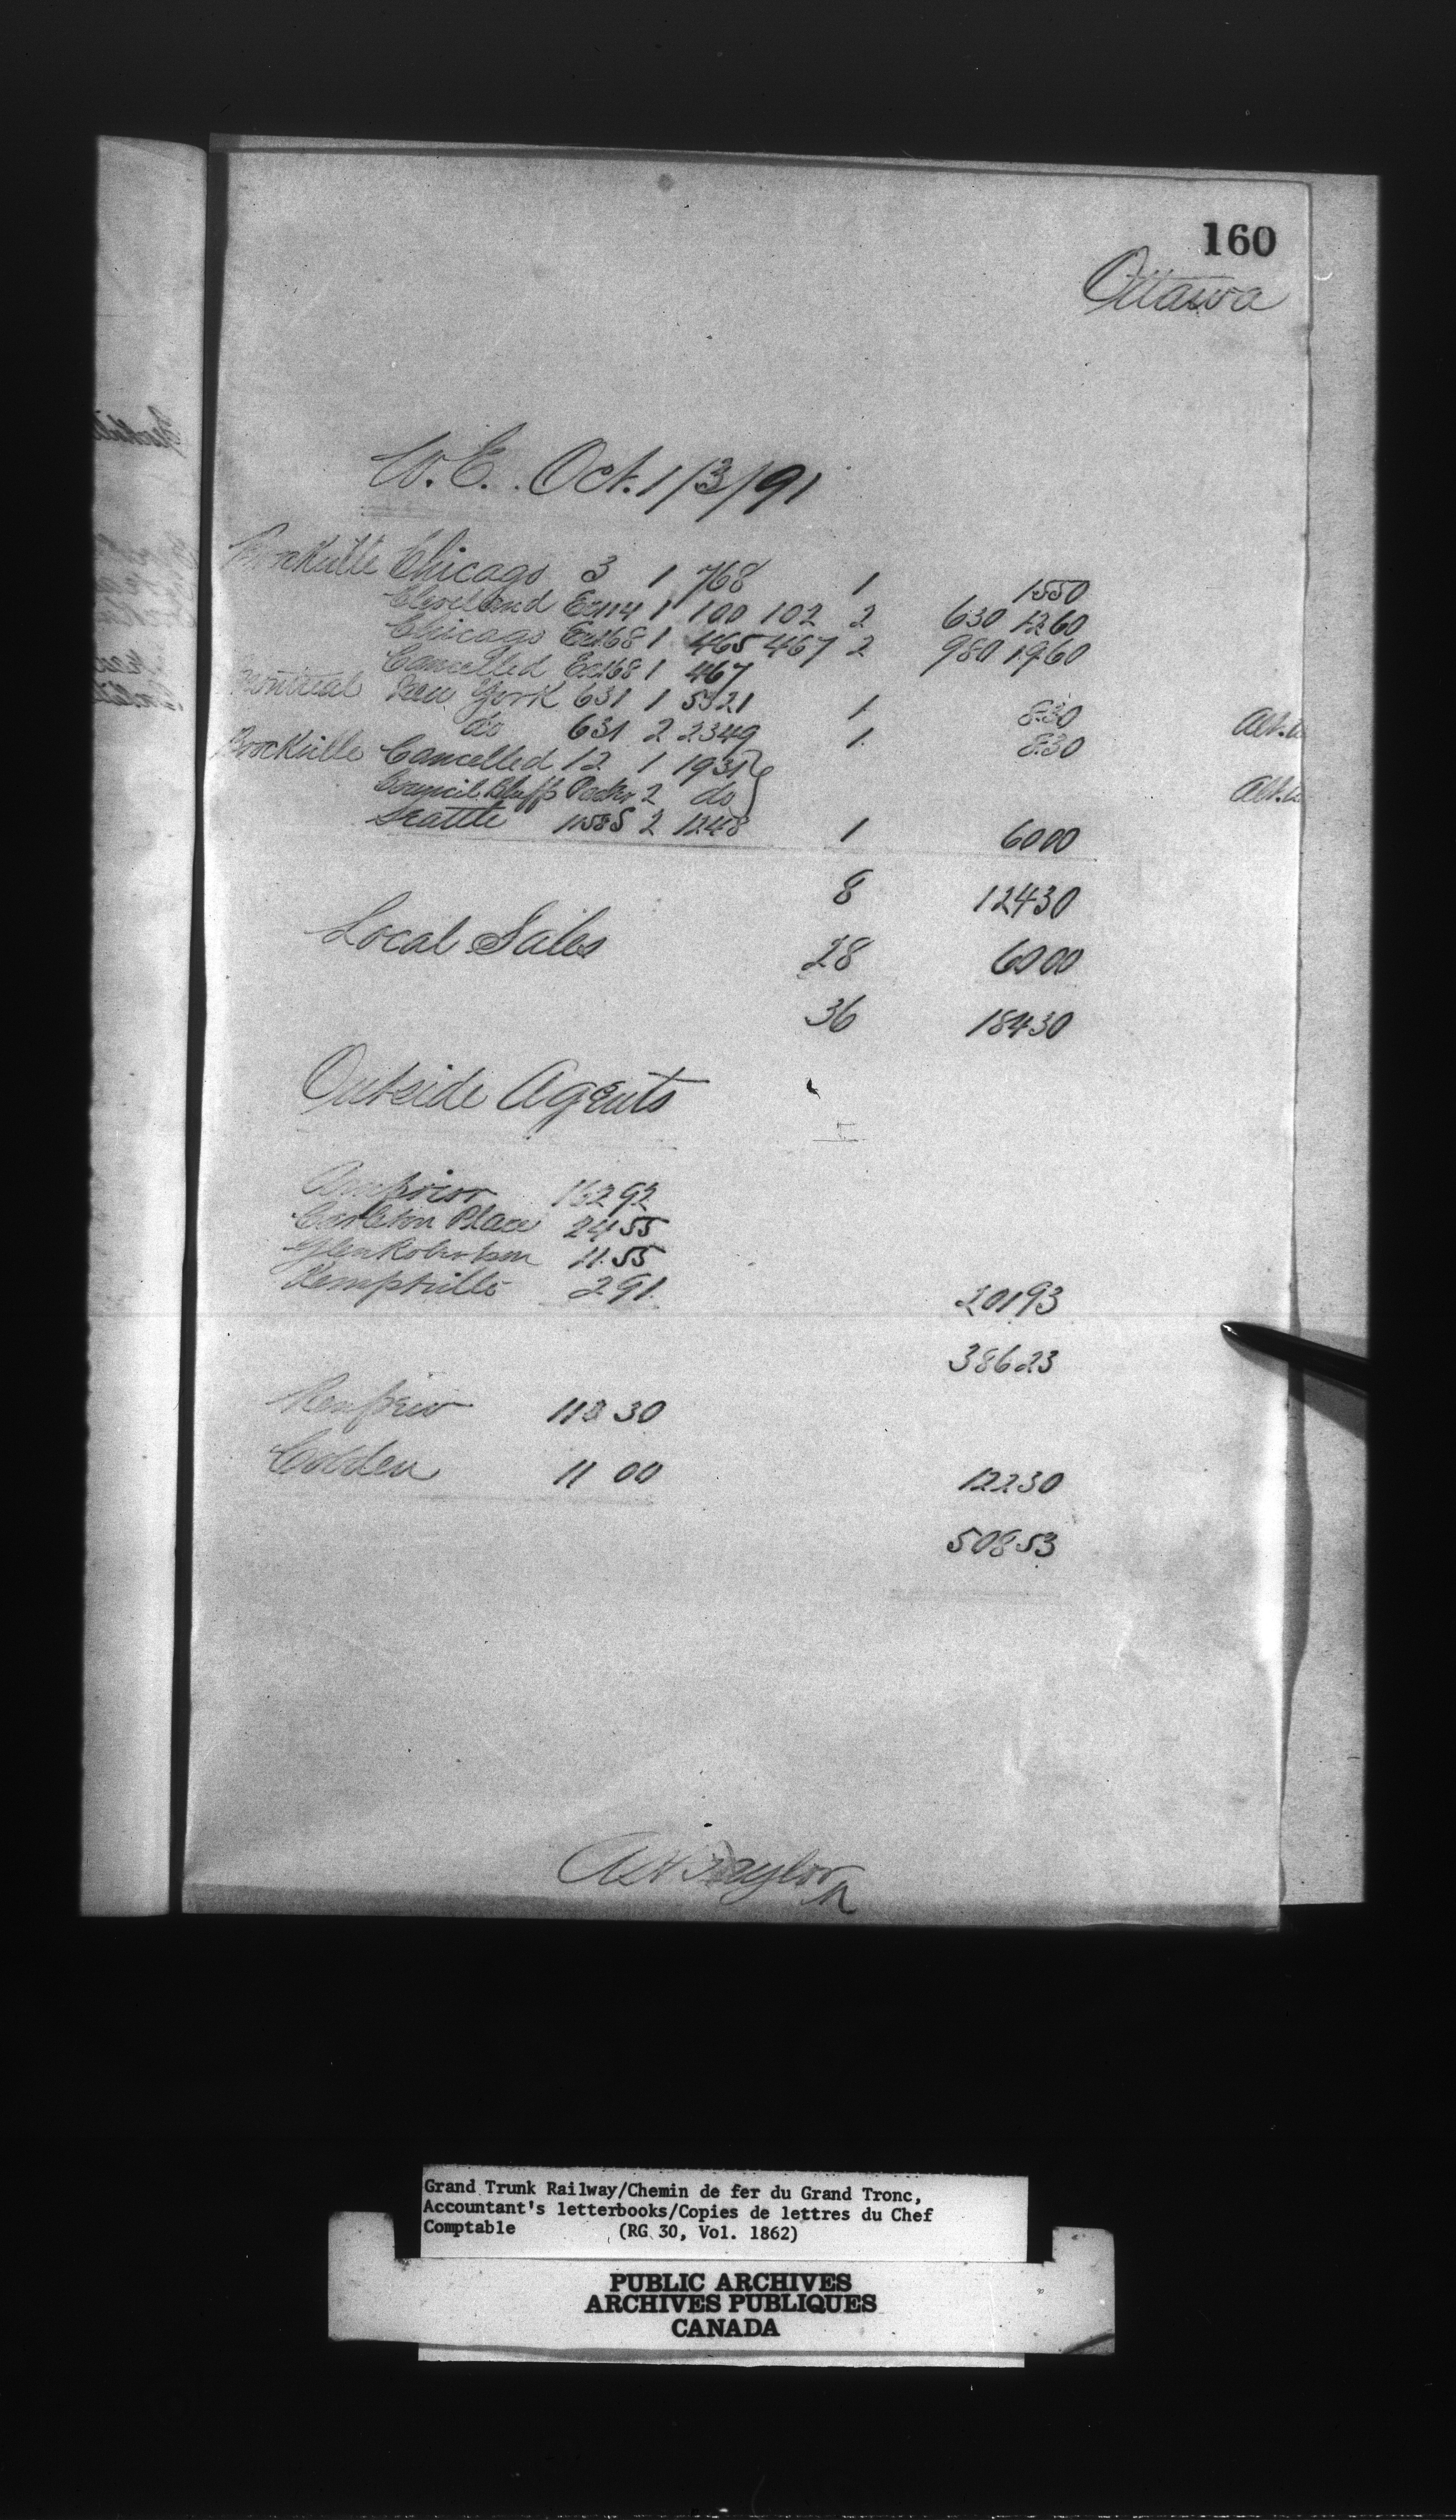 160
Ottawa
W.E. Oct. 1/3/91
Brockville Chicago 3 1 768 1 1550
Cleveland Ex114 1 100 102 2 630 1260
Chicago Ex168 1 465 467 2 980 1960
Cancelled Ex168 1 467
Montreal New York 631 1 5321 1 830
do 631 2 2349 1 830
Brockville Cancelled 12 1 1931
Council Bluffs 2 do
Seattle 2 1248 1 6000
8 12430
Local Sales 28 6000
36 18430
Outside Agents
Arnprior 162 92
Carleton Place 24 55
Glen Robertson 11.55
Kemptville 2 91 20193
38623
Renfrew 30
Cobden 11 00 12230
50853
Taylor
Grand Trunk Railway/Chemin de fer du Grand Tronc,
Accountant's letterbooks/Copies de lettres du Chef
Comptable (RG 30, Vol. 1862)
PUBLIC ARCHIVES
ARCHIVES PUBLIQUES
CANADA